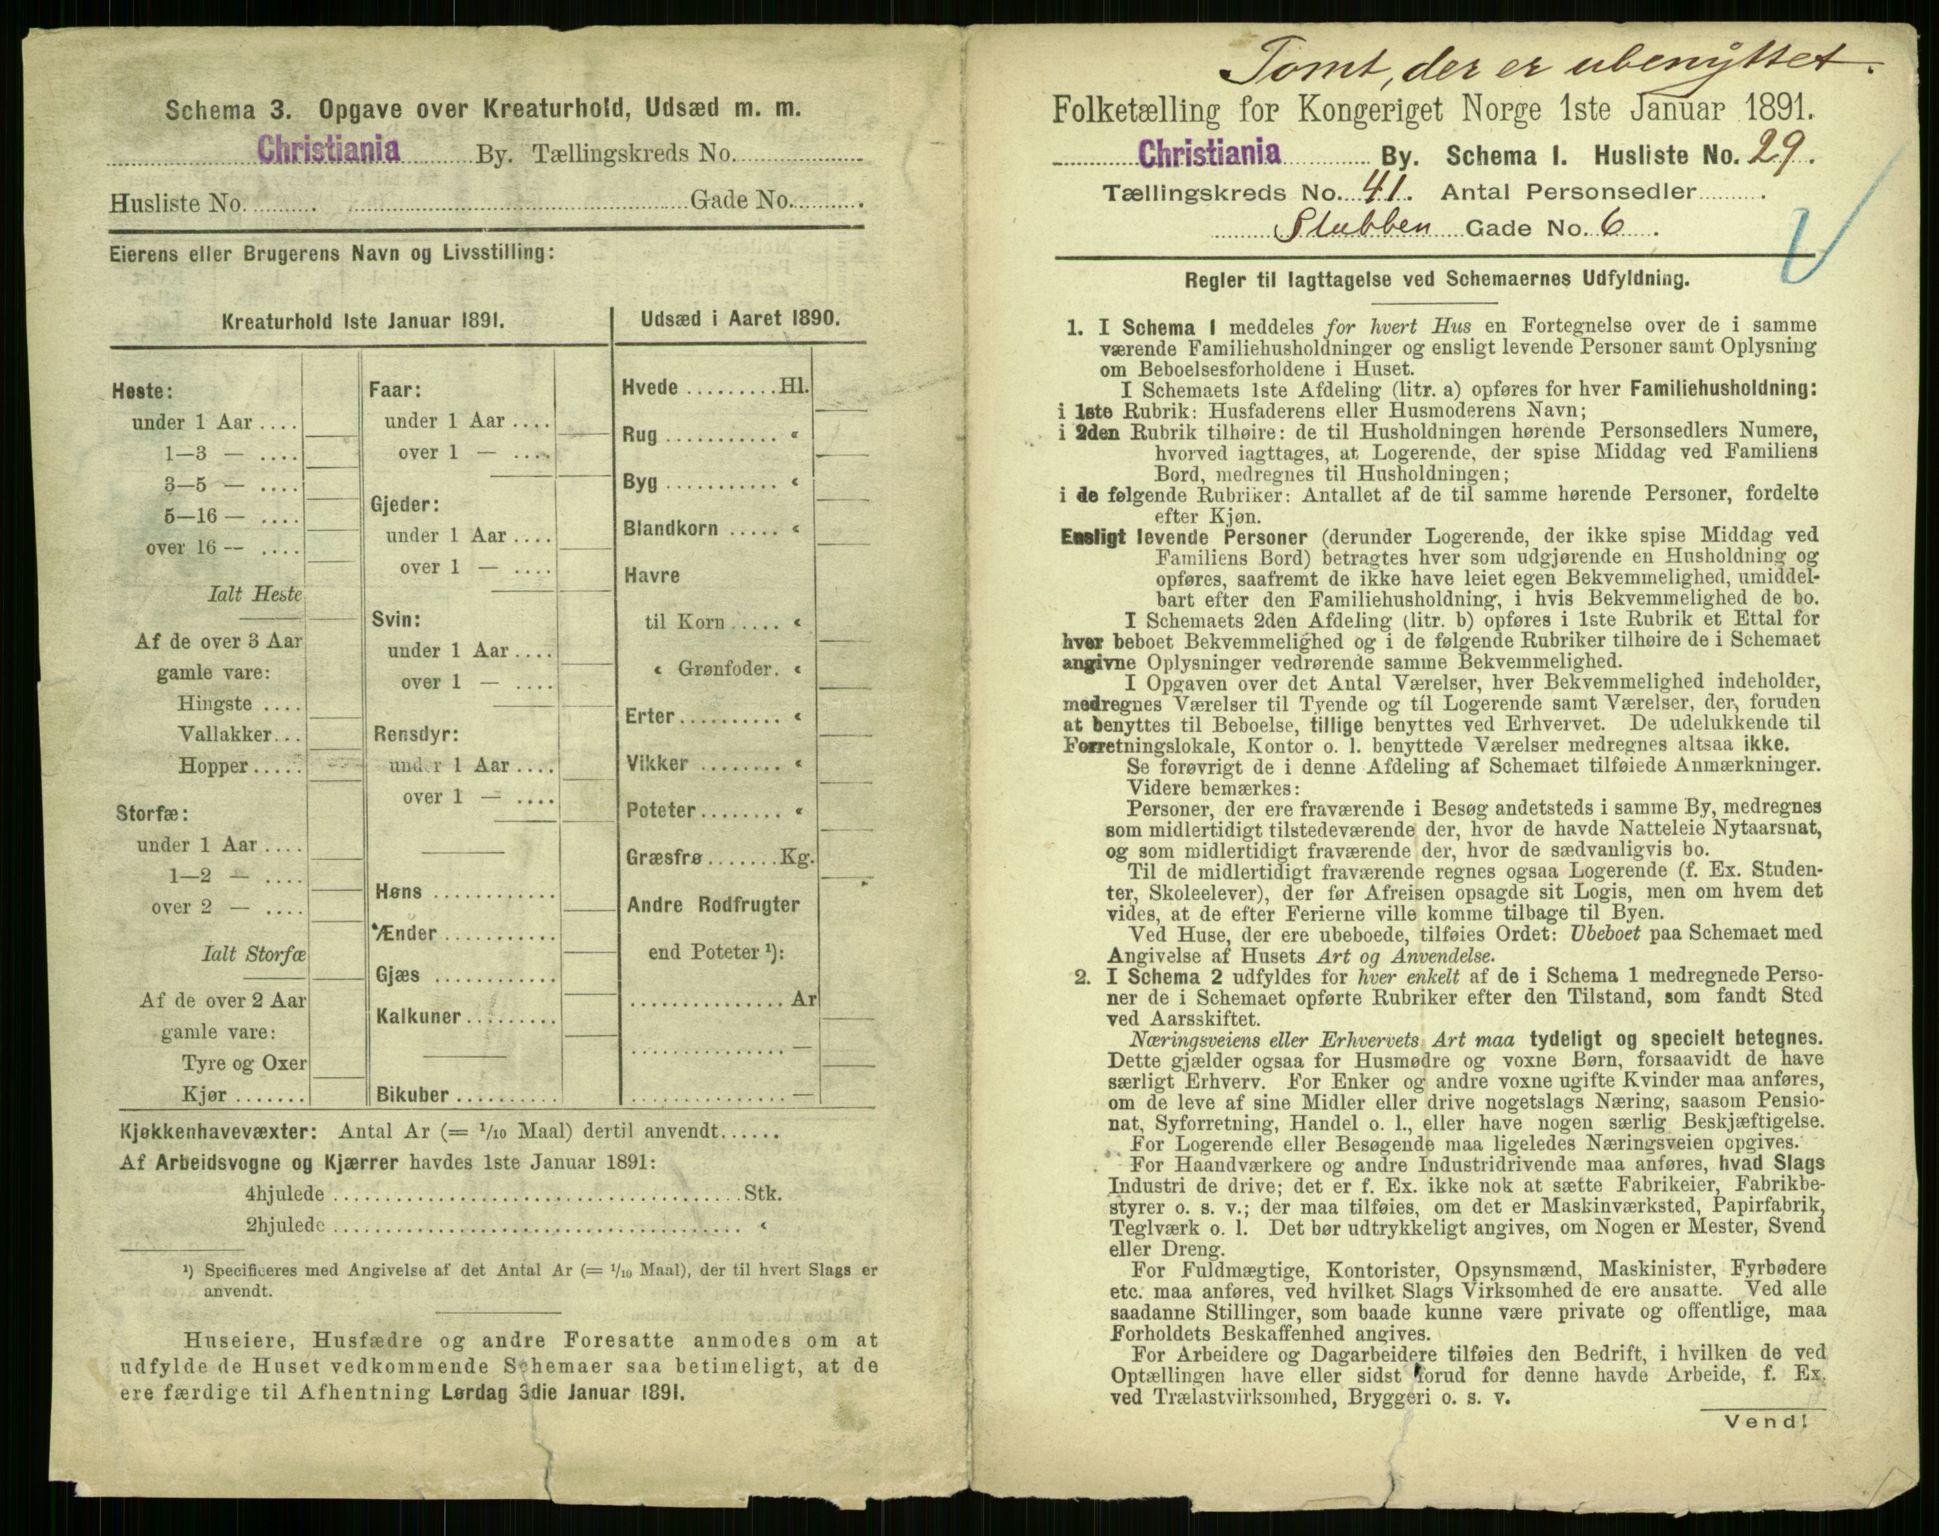 Schema 3. Opgave over Kreaturhold, Udsæd m. m.
Christiania By. Tællingskreds No.
Husliste No. Gade No.
Eierens eller Brugerens Navn og Livsstilling:
Kreaturhold 1ste Januar 1891.
Heste:
under 1 Aar ....
1—3 — ....
3—5 — ....
5—16 — ....
over 16 — ....
Ialt Heste
Af de over 3 Aar
gamle vare:
Hingste ....
Vallakker...
Hopper.....
Storfæ:
under 1 Aar ....
1—2 — ....
over 2 — ....
Ialt Storfæ
Af de over 2 Aar
gamle vare:
Tyre og Oxer
Kjør .......
Faar:
under 1 Aar ....
over 1 — ....
Gjeder:
under 1 Aar ....
over 1 — ....
Svin:
under 1 Aar ....
over 1 — ....
Rensdyr:
under 1 Aar ....
over 1 — ....
Høns ............
Ænder ...........
Gjæs ............
Kalkuner.........
Bikuber ..........
Udsæd i Aaret 1890.
Hvede .........Hl.
Rug ........... «
Byg ........... «
Blandkorn ..... «
Havre
til Korn ..... «
« Grønfoder. «
Erter.......... «
Vikker ........ «
Poteter........ «
Græsfrø .......Kg.
Andre Rodfrugter
end Poteter ¹):
............... Ar
............... —
............... —
Kjøkkenhavevæxter: Antal Ar (= 1/10 Maal) dertil anvendt......
Af Arbeidsvogne og Kjærrer havdes 1ste Januar 1891:
4hjulede ........................................ Stk.
2hjulede ........................................ «
¹) Specificeres med Angivelse af det Antal Ar (= 1/10 Maal), der til hvert Slags er
anvendt.
Huseiere, Husfædre og andre Foresatte anmodes om at
udfylde de Huset vedkommende Schemaer saa betimeligt, at de
ere færdige til Afhentning Lørdag 3die Januar 1891.
Tomt, der er ubenyttet.
Folketælling for Kongeriget Norge 1ste Januar 1891.
Christiania By. Schema 1. Husliste No. 29.
Tællingskreds No. 41. Antal Personsedler .
Stubben Gade No. 6 .
Regler til Iagttagelse ved Schemaernes Udfyldning.
1. I Schema 1 meddeles for hvert Hus en Fortegnelse over de i samme
værende Familiehusholdninger og ensligt levende Personer samt Oplysning
om Beboelsesforholdene i Huset.
I Schemaets 1ste Afdeling (litr. a) opføres for hver Familiehusholdning:
i 1ste Rubrik: Husfaderens eller Husmoderens Navn;
i 2den Rubrik tilhøire: de til Husholdningen hørende Personsedlers Numere,
hvorved iagttages, at Logerende, der spise Middag ved Familiens
Bord, medregnes til Husholdningen;
i de følgende Rubriker: Antallet af de til samme hørende Personer, fordelte
efter Kjøn.
Ensligt levende Personer (derunder Logerende, der ikke spise Middag ved
Familiens Bord) betragtes hver som udgjørende en Husholdning og
opføres, saafremt de ikke have leiet egen Bekvemmelighed, umiddel-
bart efter den Familiehusholdning, i hvis Bekvemmelighed de bo.
I Schemaets 2den Afdeling (litr. b) opføres i 1ste Rubrik et Ettal for
hver beboet Bekvemmelighed og i de følgende Rubriker tilhøire de i Schemaet
angivne Oplysninger vedrørende samme Bekvemmelighed.
I Opgaven over det Antal Værelser, hver Bekvemmelighed indeholder,
medregnes Værelser til Tyende og til Logerende samt Værelser, der, foruden
at benyttes til Beboelse, tillige benyttes ved Erhvervet. De udelukkende til
Forretningslokale, Kontor o. l. benyttede Værelser medregnes altsaa ikke.
Se forøvrigt de i denne Afdeling af Schemaet tilføiede Anmærkninger.
Videre bemærkes:
Personer, der ere fraværende i Besøg andetsteds i samme By, medregnes
som midlertidigt tilstedeværende der, hvor de havde Natteleie Nytaarsnat,
og som midlertidigt fraværende der, hvor de sædvanligvis bo.
Til de midlertidigt fraværende regnes ogsaa Logerende (f. Ex. Studen-
ter, Skoleelever), der før Afreisen opsagde sit Logis, men om hvem det
vides, at de efter Ferierne ville komme tilbage til Byen.
Ved Huse, der ere ubeboede, tilføies Ordet: Ubeboet paa Schemaet med
Angivelse af Husets Art og Anvendelse.
2. I Schema 2 udfyldes for hver enkelt af de i Schema 1 medregnede Perso-
ner de i Schemaet opførte Rubriker efter den Tilstand, som fandt Sted
ved Aarsskiftet.
Næringsveiens eller Erhvervets Art maa tydeligt og specielt betegnes.
Dette gjælder ogsaa for Husmødre og voxne Børn, forsaavidt de have
særligt Erhverv. For Enker og andre voxne ugifte Kvinder maa anføres,
om de leve af sine Midler eller drive nogetslags Næring, saasom Pensio-
nat, Syforretning, Handel o. l., eller have nogen særlig Beskjæftigelse.
For Logerende eller Besøgende maa ligeledes Næringsveien opgives.
For Haandværkere og andre Industridrivende maa anføres, hvad Slags
Industri de drive; det er f. Ex. ikke nok at sætte Fabrikeier, Fabrikbe-
styrer o. s. v.; der maa tilføies, om det er Maskinværksted, Papirfabrik,
Teglværk o. l. Det bør udtrykkeligt angives, om Nogen er Mester, Svend
eller Dreng.
For Fuldmægtige, Kontorister, Opsynsmænd, Maskinister, Fyrbødere
etc. maa anføres, ved hvilket Slags Virksomhed de ere ansatte. Ved alle
saadanne Stillinger, som baade kunne være private og offentlige, maa
Forholdets Beskaffenhed angives.
For Arbeidere og Dagarbeidere tilføies den Bedrift, i hvilken de ved
Optællingen have eller sidst forud for denne havde Arbeide, f. Ex.
ved Trælastvirksomhed, Bryggeri o. s. v.
Vend!